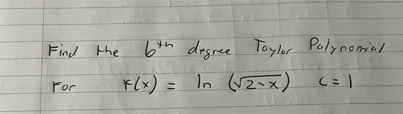 Find the 6th degree Taylor Polynomial
For f(x) = ln (√2-x) c=1